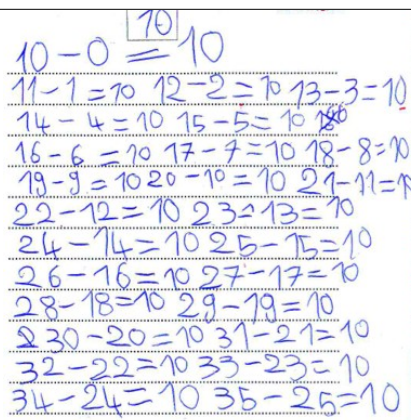 10
10-0=10
11-1=10 12-2=10 13-3=10
14-4=10 15-5=10
16-6=10 17-7=10 18-8=10
19-9=10 20-10=10 21-11=1
22-12=10 23-13=10
24-14=10 25-15=10
26-16=10 27-17=10
28-18=10 29-19=10
30-20=10 31-21=10
32-22=10 33-23=10
34-24=10 35-25=10